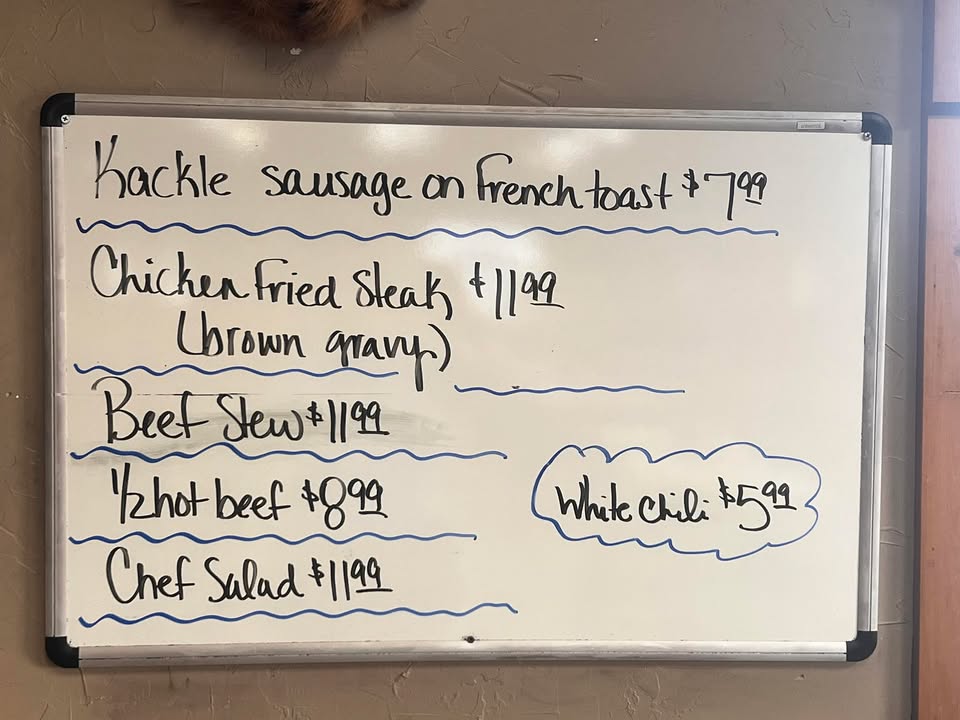 Kackle sausage on French toast $7 99
Chicken Fried Steak $11 99
(brown gravy)
Beef Stew $11 99
1/2 hot beef $8 99
White chili $5 99
Chef Salad $11 99